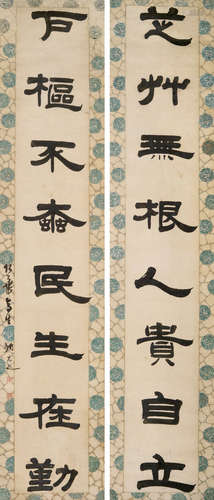 芝艸無根人貴自立
戶樞不蠹民生在勤